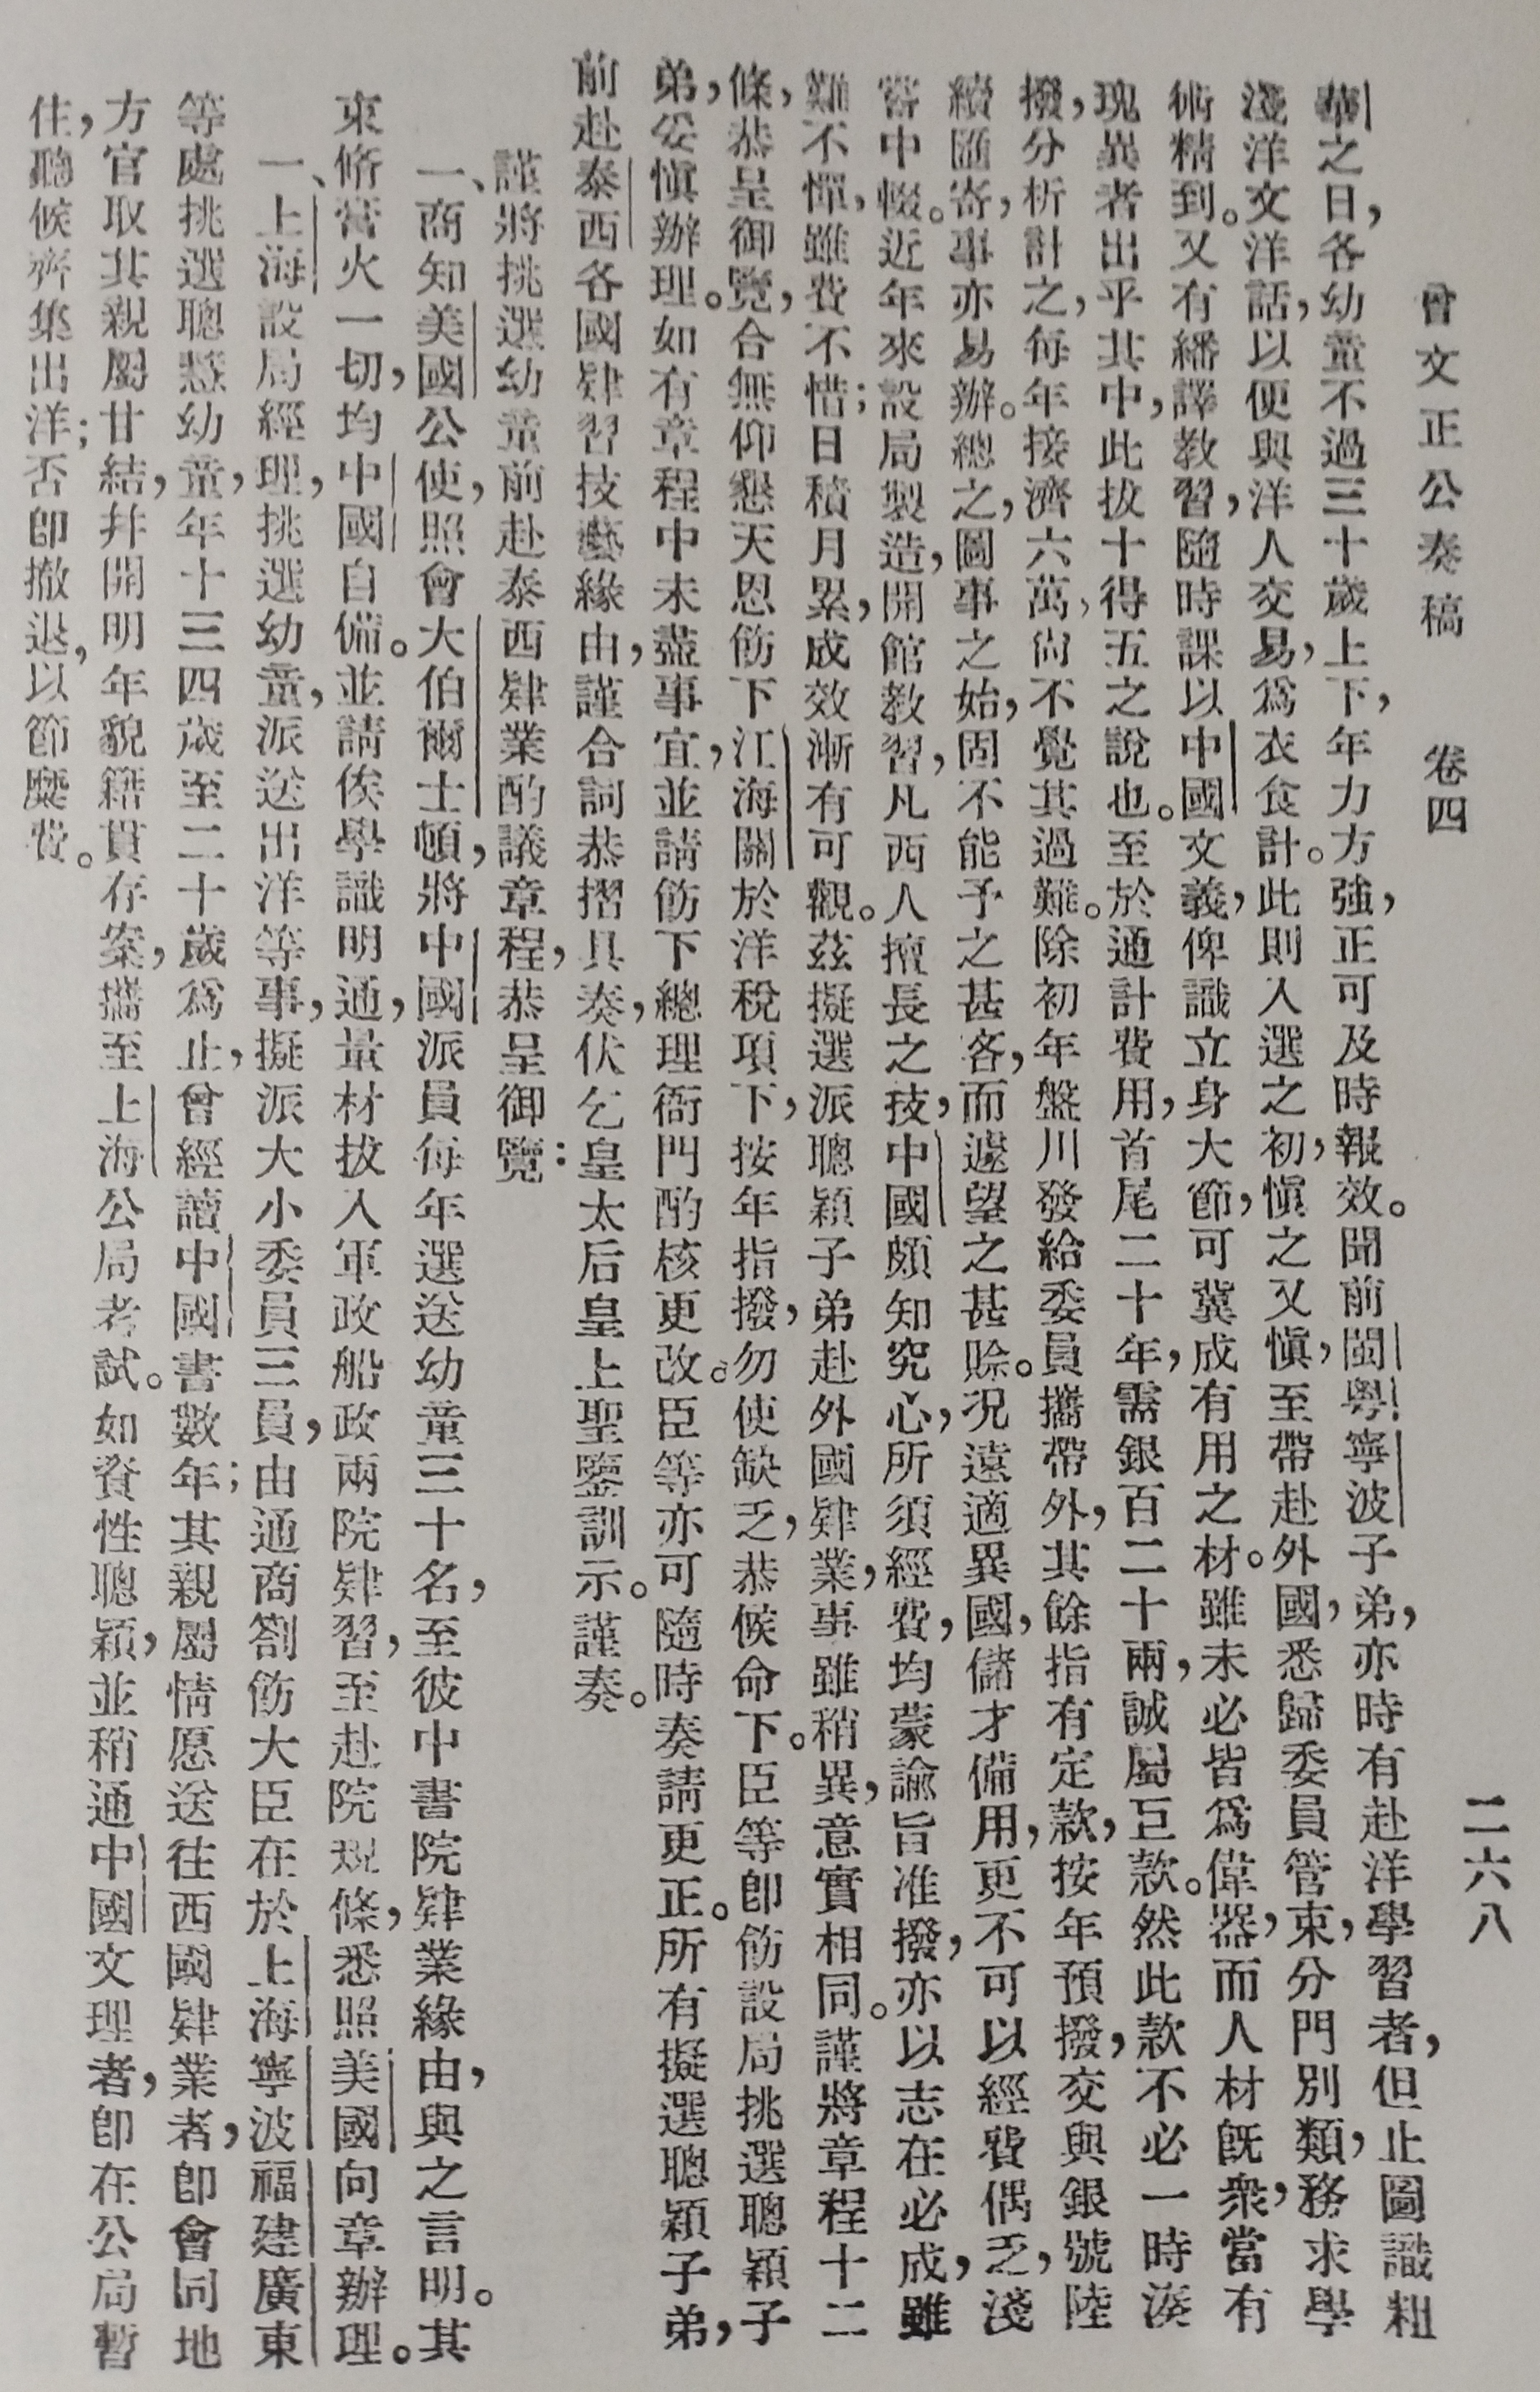 曾文正公奏稿　卷四　二六八
華之日，各幼童不過三十歲上下，年力方強，正可及時報效。聞前閩粵寧波子弟，亦時有赴洋學習者，但止圖識粗
淺洋文洋話，以便與洋人交易，爲衣食計。此則入選之初，愼之又愼，至帶赴外國，悉歸委員管束，分門別類，務求學
術精到。又有繙譯教習，隨時課以中國文義，俾識立身大節，可冀成有用之材。雖未必皆爲偉器，而人材旣衆，當有
瑰異者出乎其中，此拔十得五之說也。至於通計費用，首尾二十年，需銀百二十兩，誠屬巨款。然此款不必一時湊
撥，分析計之，每年接濟六萬，尙不覺其過難。除初年盤川發給委員攜帶外，其餘指有定款，按年預撥，交與銀號陸
續匯寄，事亦易辦。總之，圖事之始，固不能予之甚吝，而遽望之甚賒。況遠適異國，儲才備用，更不可以經費偶乏，淺
嘗中輟。近年來設局製造，開館教習，凡西人擅長之技，中國頗知究心，所須經費，均蒙諭旨准撥，亦以志在必成，雖
難不憚，雖費不惜；日積月累，成效漸有可觀。茲擬選派聰穎子弟赴外國肄業，事雖稍異，意實相同。謹將章程十二
條，恭呈御覽，合無仰懇天恩飭下江海關於洋稅項下，按年指撥，勿使缺乏，恭候命下。臣等卽飭設局挑選聰穎子
弟，妥愼辦理。如有章程中未盡事宜，並請飭下總理衙門酌核更改。臣等亦可隨時奏請更正。所有擬選聰穎子弟，
前赴泰西各國肄習技藝緣由，謹合詞恭摺具奏，伏乞皇太后皇上聖鑒訓示。謹奏。
謹將挑選幼童前赴泰西肄業酌議章程，恭呈御覽：
一、商知美國公使，照會大伯爾士頓，將中國派員每年選送幼童三十名，至彼中書院肄業緣由，與之言明。其
束脩膏火一切，均中國自備。並請俟學識明通，量材拔入軍政船政兩院肄習，至赴院規條，悉照美國向章辦理。
一、上海設局經理，挑選幼童，派送出洋等事，擬派大小委員三員，由通商劄飭大臣在於上海寧波福建廣東
等處挑選聰慧幼童，年十三四歲至二十歲爲止，曾經讀中國書數年；其親屬情愿送往西國肄業者，卽會同地
方官取其親屬甘結，幷開明年貌籍貫存案，攜至上海公局考試。如資性聰穎，並稍通中國文理者，卽在公局暫
住，聽候齊集出洋；否卽撤退，以節糜費。